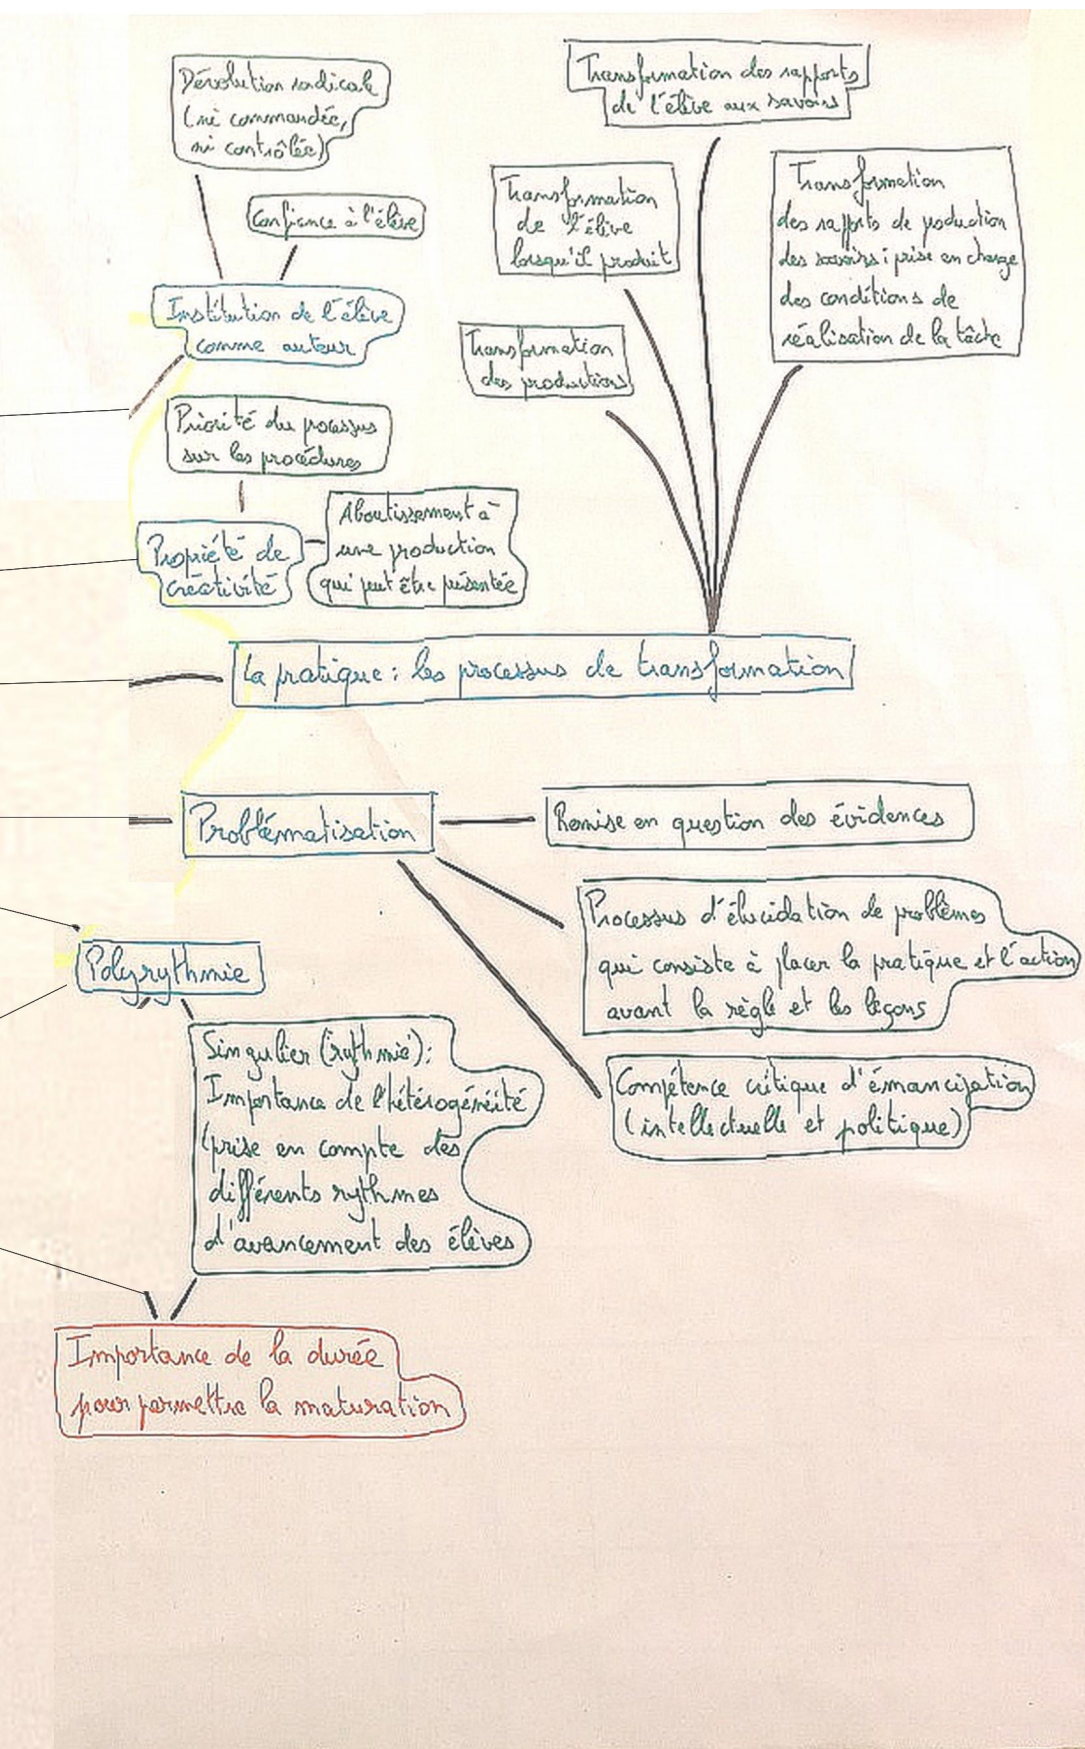 Dévolution radicale
(ni commandée,
ni contrôlée)
Confiance à l'élève
Institution de l'élève
comme auteur
Priorité du processus
sur les procédures
Propriété de
créativité
Aboutissement à
une production
qui peut être présentée
Transformation des rapports
de l'élève aux savoirs
Transformation
de l'élève
lorsqu'il produit
Transformation
des rapports de production
des savoirs : prise en charge
des conditions de
réalisation de la tâche
Transformation
des productions
La pratique : les processus de transformation
Problématisation
Remise en question des évidences
Processus d'élucidation de problèmes
qui consiste à placer la pratique et l'action
avant la règle et les leçons
Compétence critique d'émancipation
(intellectuelle et politique)
Polyrythmie
Singulier (rythmie) :
Importance de l'hétérogénéité
(prise en compte des
différents rythmes
d'avancement des élèves
Importance de la durée
pour permettre la maturation